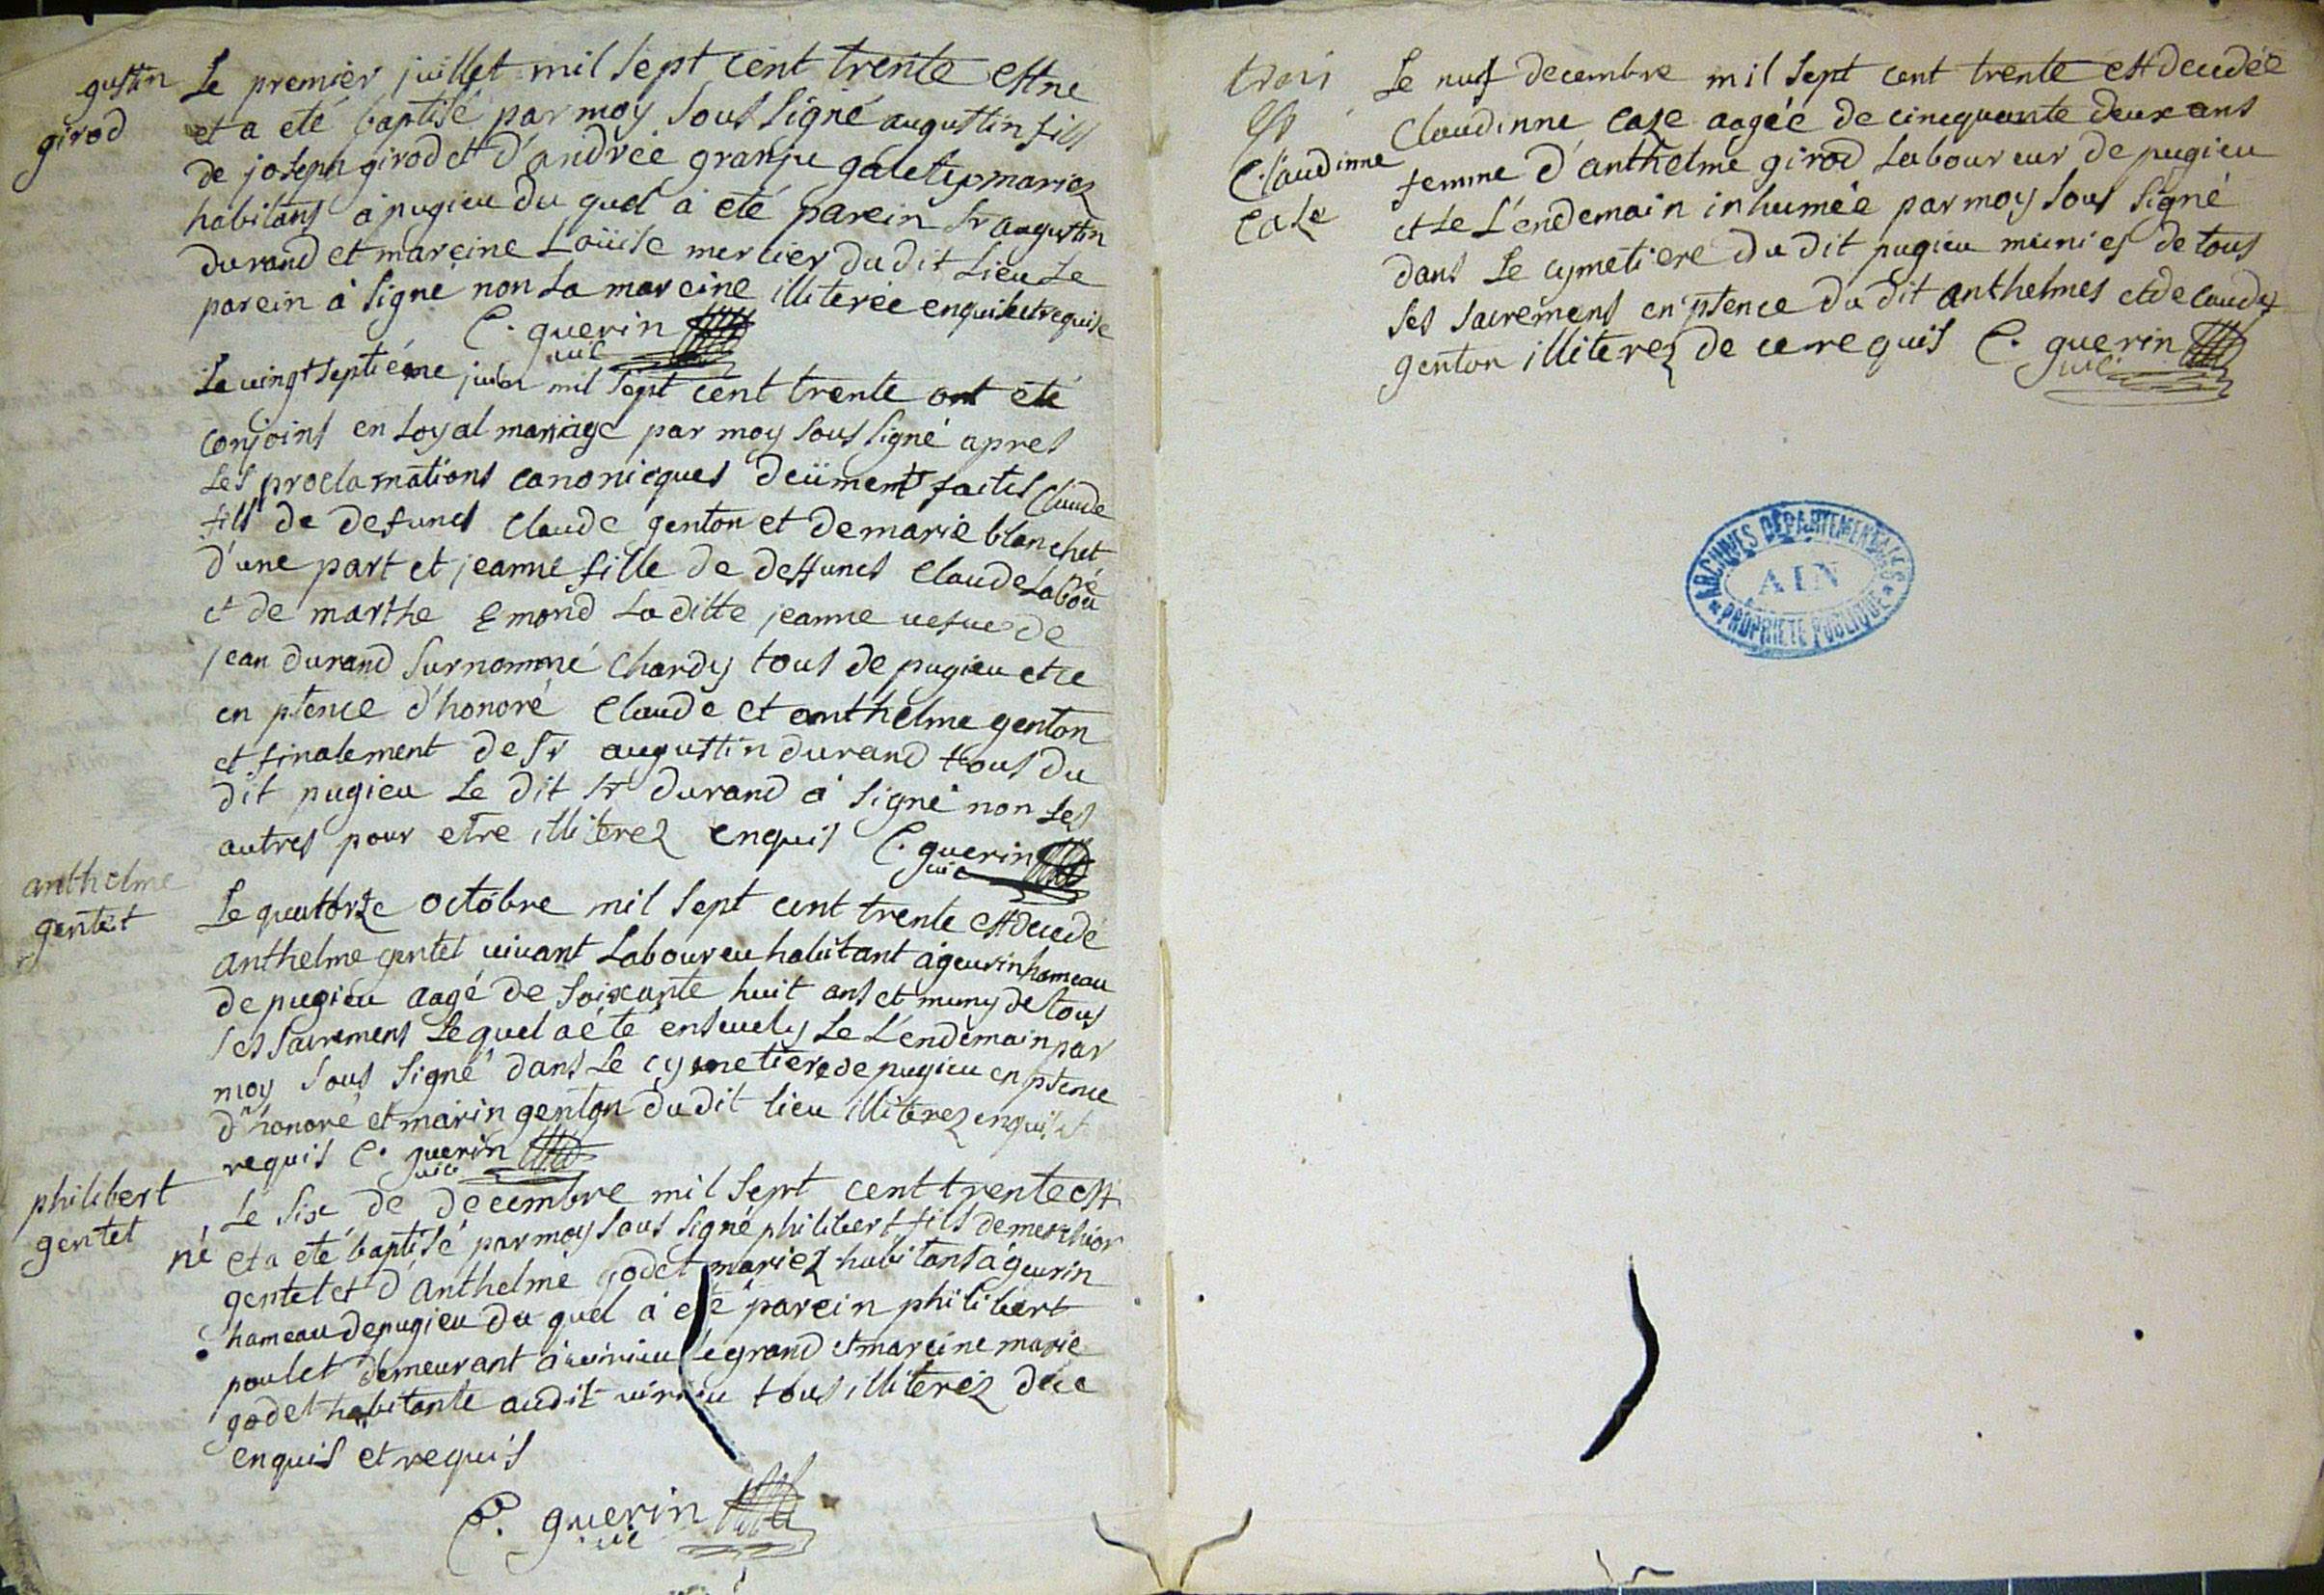 gustin
girod
Le premier juillet mil sept cent trente est né
et a eté baptisé par moy sous signé augustin fils
de joseph girod et d'andrée granju galety mariez
habitans a pugieu du quel à eté parein sr augustin
durand et mareine Loüise mercier du dit Lieu Le
parein à signé non La mareine illiterée enquise et requise
C. guerin
vic
Le vingt septiéme juin mil sept cent trente ont eté
conjoins en Loyal mariage par moy sous signé apres
Les proclamations canonicques deüment faites Claude
fils de defunct Claude genton et de marie blanchet
d'une part et jeanne fille de deffunct Claude Laboü
et de marthe Emond La ditte jeanne vefue de
jean durand surnommé Chardy tous de pugieu et ce
en ptence d'honoré Claude et anthelme genton
et finalement de sr augustin durand tous du
dit pugieu Le dit sr durand à signé non Les
autres pour etre illiterez enquis C. guerin
vic
anthelme
gentet
Le quatorze octobre mil sept cent trente est decedé
anthelme gentet vivant Laboureu habitant à gevrin hameau
de pugieu aagé de soixante huit ans et muny de tous
ses sacremens Le quel a été ensevely Le L'endemain par
moy sous signé dans Le cymetiere de pugieu en ptence
d'honoré et marin genton du dit lieu illiterez enquis et
requis C. guerin
vic
philibert
gentet
Le six de decembre mil sept cent trente est
né et a eté baptisé par moy sous signé philibert fils de merchior
gentet et d'Anthelme godet mariez habitans à gevrin
hameau de pugieu du quel à eté parein philibert
poulet demeurant à virieu le grand et mareine marie
godet habitante audit virieu tous illiteréz de ce
enquis et requis
C. guerin
vic
Claudinne
Caze
Le nuf decembre mil sept cent trente est decedée
Claudinne Caze aagée de cincquante deux ans
femme d'anthelme girod Laboureur de pugieu
et Le L'endemain inhumée par moy sous signé
dans Le cymetiere du dit pugieu munies de tous
ses sacremens en ptence du dit anthelmes et de Claudy
genton illiterez de ce requis C. guerin
vic
ARCHIVES DÉPARTEMENTALES
AIN
PROPRIÉTÉ PUBLIQUE